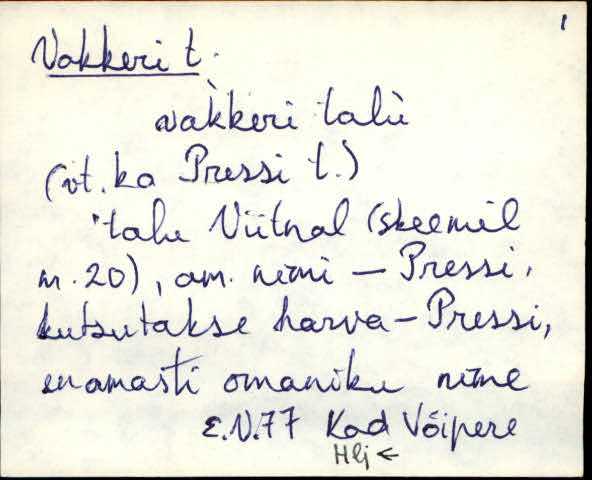 1
Vakkeri t.
vàkkeri talù
(vt. ka Pressi t.)
'talu Viitnal (skeemil
nr. 20), am. nimi – Pressi,
kutsutakse harva – Pressi,
enamasti omaniku nime
E.V.77 Kad Võipere
Hlj ←